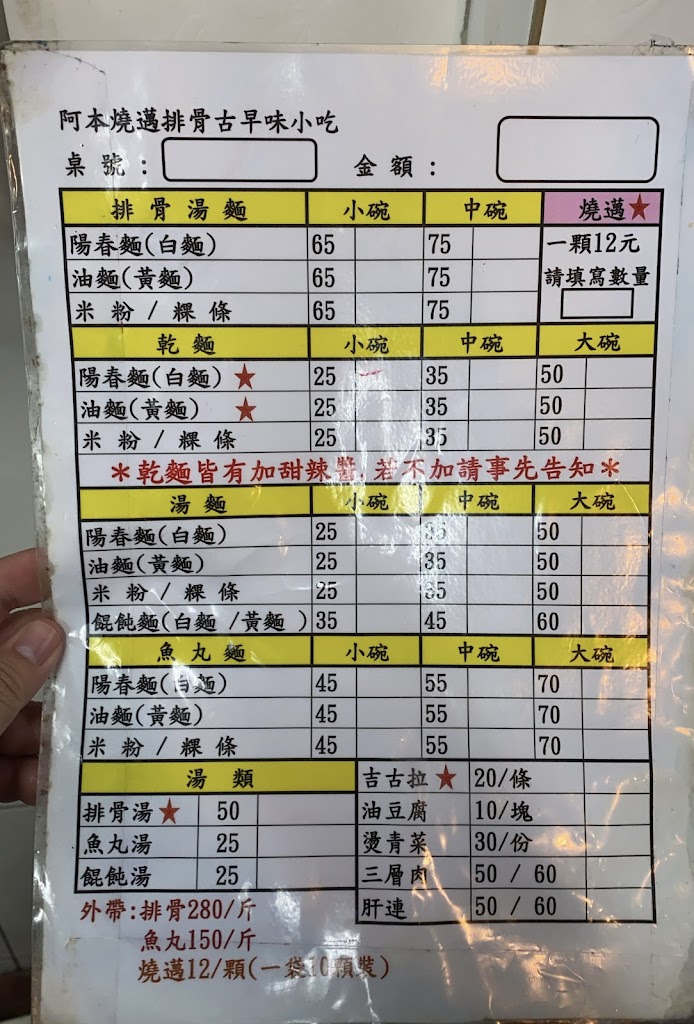 阿本燒邁排骨古早味小吃
桌號: 金額:
排骨湯麵 小碗 中碗 燒邁★
陽春麵(白麵) 65 75 一顆12元
油麵(黃麵) 65 75 請填寫數量
米粉/粿條 65 75
乾麵 小碗 中碗 大碗
陽春麵(白麵)★ 25 35 50
油麵(黃麵)★ 25 35 50
米粉/粿條 25 35 50
*乾麵皆有加甜辣醬,若不加請事先告知*
湯麵 小碗 中碗 大碗
陽春麵(白麵) 25 35 50
油麵(黃麵) 25 35 50
米粉/粿條 25 35 50
餛飩麵(白麵/黃麵) 35 45 60
魚丸麵 小碗 中碗 大碗
陽春麵(白麵) 45 55 70
油麵(黃麵) 45 55 70
米粉/粿條 45 55 70
湯類 吉古拉★ 20/條
排骨湯★ 50 油豆腐 10/塊
魚丸湯 25 燙青菜 30/份
餛飩湯 25 三層肉 50 / 60
肝連 50 / 60
外帶:排骨280/斤
魚丸150/斤
燒邁12/顆(一袋10顆裝)